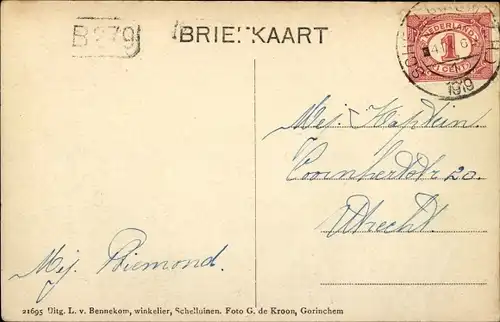 B 279
BRIEFKAART
NEDERLAND
1
CENT
1919
Mej. Kaptein.
Coornhertstr 20.
Utrecht.
Mej. Riemond.
21695 Uitg. L. v. Bennekom, winkelier, Schelluinen. Foto G. de Kroon, Gorinchem